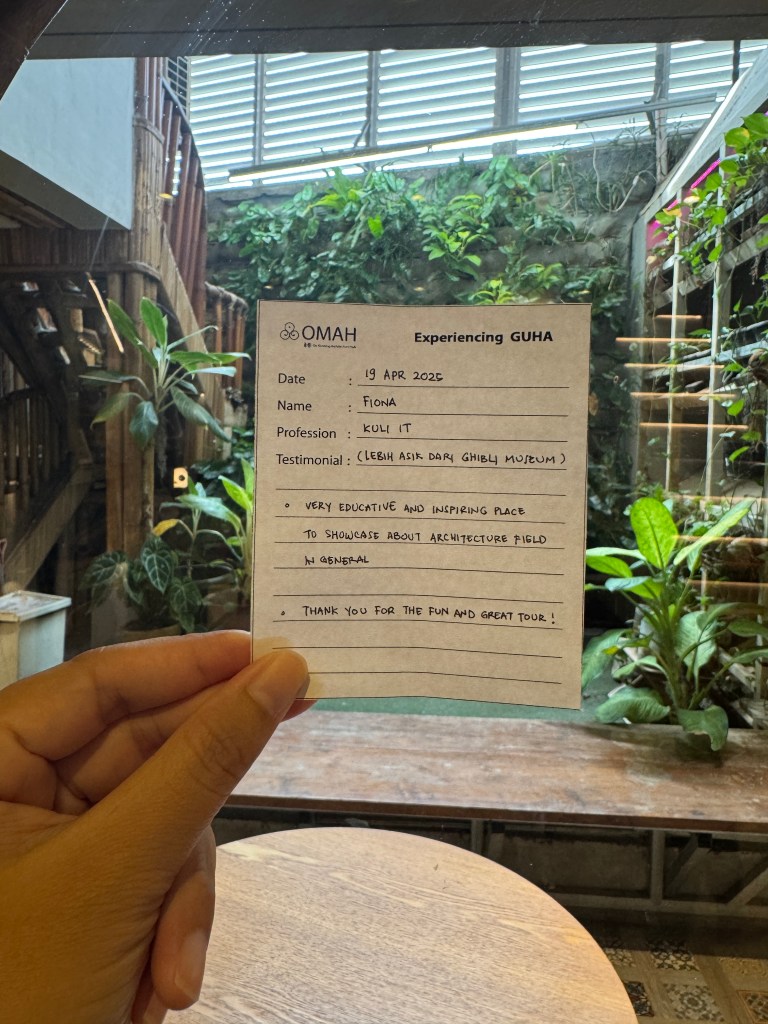 OMAH Experiencing GUHA
Date : 19 APR 2025
Name : FIONA
Profession : KULI IT
Testimonial : (LEBIH ASIK DARI GHIBLI MUSEUM)
• VERY EDUCATIVE AND INSPIRING PLACE
TO SHOWCASE ABOUT ARCHITECTURE FIELD
IN GENERAL
• THANK YOU FOR THE FUN AND GREAT TOUR!